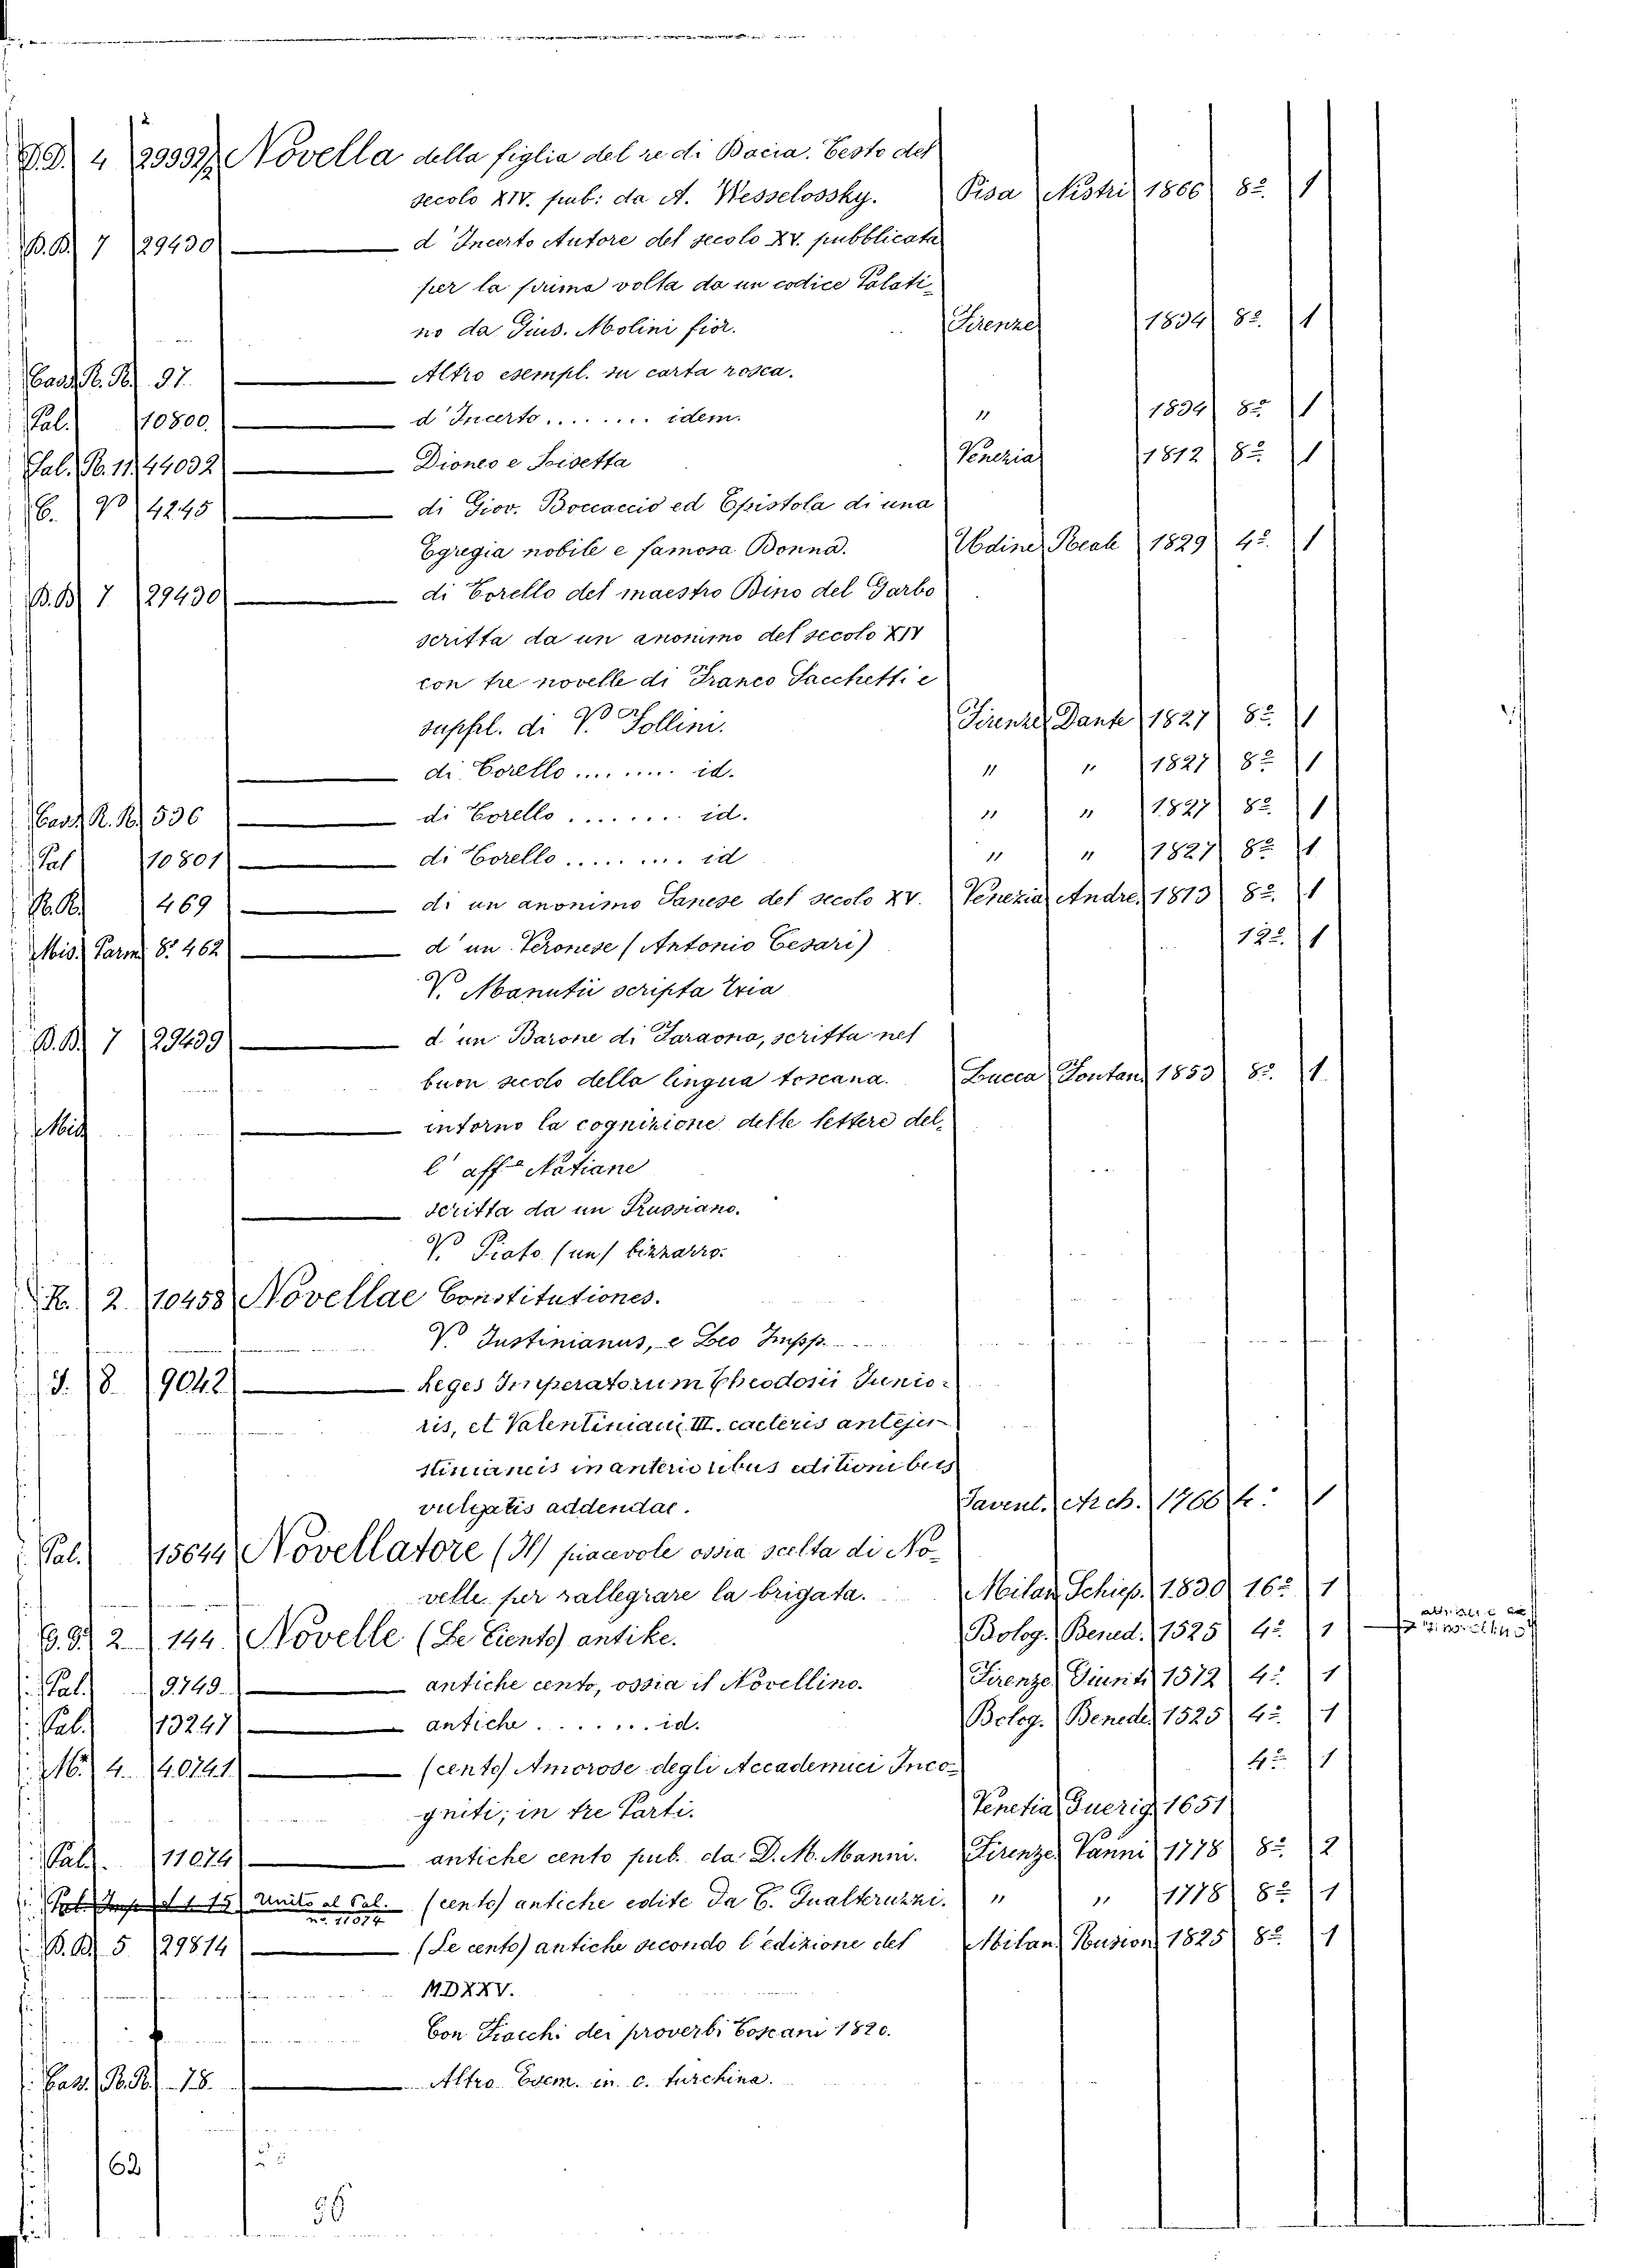 4 29992 Novella della figlia del re di Dacia. Testo del
secolo XIV. pub: da A. Wesselossky. Pisa Nistri 1866 8º. 1
B.B. 7 29430 ——— d'Incerto Autore del secolo XV. pubblicata
per la prima volta da un codice Palati-
no da Gius. Molini fior. Firenze 1834 8º. 1
Cass. R.R. 97. ——— Altro esempl. in carta rosea.
Pal. 10800. ——— d'Incerto ........ idem. " 1834 8º 1
Sal. R. 11. 44032 ——— Dioneo e Lisetta Venezia 1812 8º 1
4245 ——— di Giov. Boccaccio ed Epistola di una
Egregia nobile e famosa Donna. Udine Pecile 1829 4º. 1
B.B. 7 29430 ——— di Torello del maestro Dino del Garbo
scritta da un anonimo del secolo XIV
con tre novelle di Franco Sacchetti e
suppl. di V. Follini. Firenze Dante 1827 8º. 1
——— di Torello ........ id. " " 1827 8º 1
Cass. R.R. 536 ——— di Torello ........ id. " " 1827 8º. 1
Pal 10801 ——— di Torello ........ id " " 1827 8º 1
R.R. 469 ——— di un anonimo Sanese del secolo XV. Venezia Andre. 1813 8º. 1
Mis. Parm. 8º 462 ——— d'un Veronese (Antonio Cesari) 12º. 1
V. Manutii scripta tria
B.B. 7 29439 ——— d'un Barone di Faraona, scritta nel
buon secolo della lingua toscana. Lucca Fontan. 1853 8º. 1
Mis. ——— intorno la cognizione delle lettere del-
l'aff. Natiane
——— scritta da un Prussiano.
V. Piato (un) bizzarro.
R. 2. 10458 Novellae Constitutiones.
V. Justinianus, e Leo Impp.
J. 8. 9042 ——— Leges Imperatorum Theodosii Junio-
ris, et Valentiniani III. caeteris antejus-
tinianeis in anterioribus editionibus
vulgatis addendae. Favent. Arch. 1766 4º. 1
Pal. 15644 Novellatore (Il) piacevole ossia scelta di No-
velle per rallegrare la brigata. Milan Schiep. 1830 16º 1
2 144 Novelle (Le Ciento) antike. Bolog. Bened. 1525 4º. 1
Pal. 9749 ——— antiche cento, ossia il Novellino. Firenze Giunti 1572 4º. 1
Pal. 13247 ——— antiche ....... id. Bolog. Benede. 1525 4º. 1
4. 40741 ——— (cento) Amorose degli Accademici Inco- 4º 1
gniti; in tre Parti. Venetia Guerig. 1651
Pal. 11074 ——— antiche cento pub. da D. M. Manni. Firenze Vanni 1778 8º. 2
Unito al Pal. nº. 11074 (cento) antiche edite da C. Gualteruzzi. " " 1778 8º 1
B.B. 5 29814 ——— (Le cento) antiche secondo l'edizione del Milan. Tosi 1825 8º. 1
MDXXV.
Con Fiocchi dei proverbi Toscani 1820.
Cass. R.R. 78. ——— Altro Esem. in c. turchina.
62
56